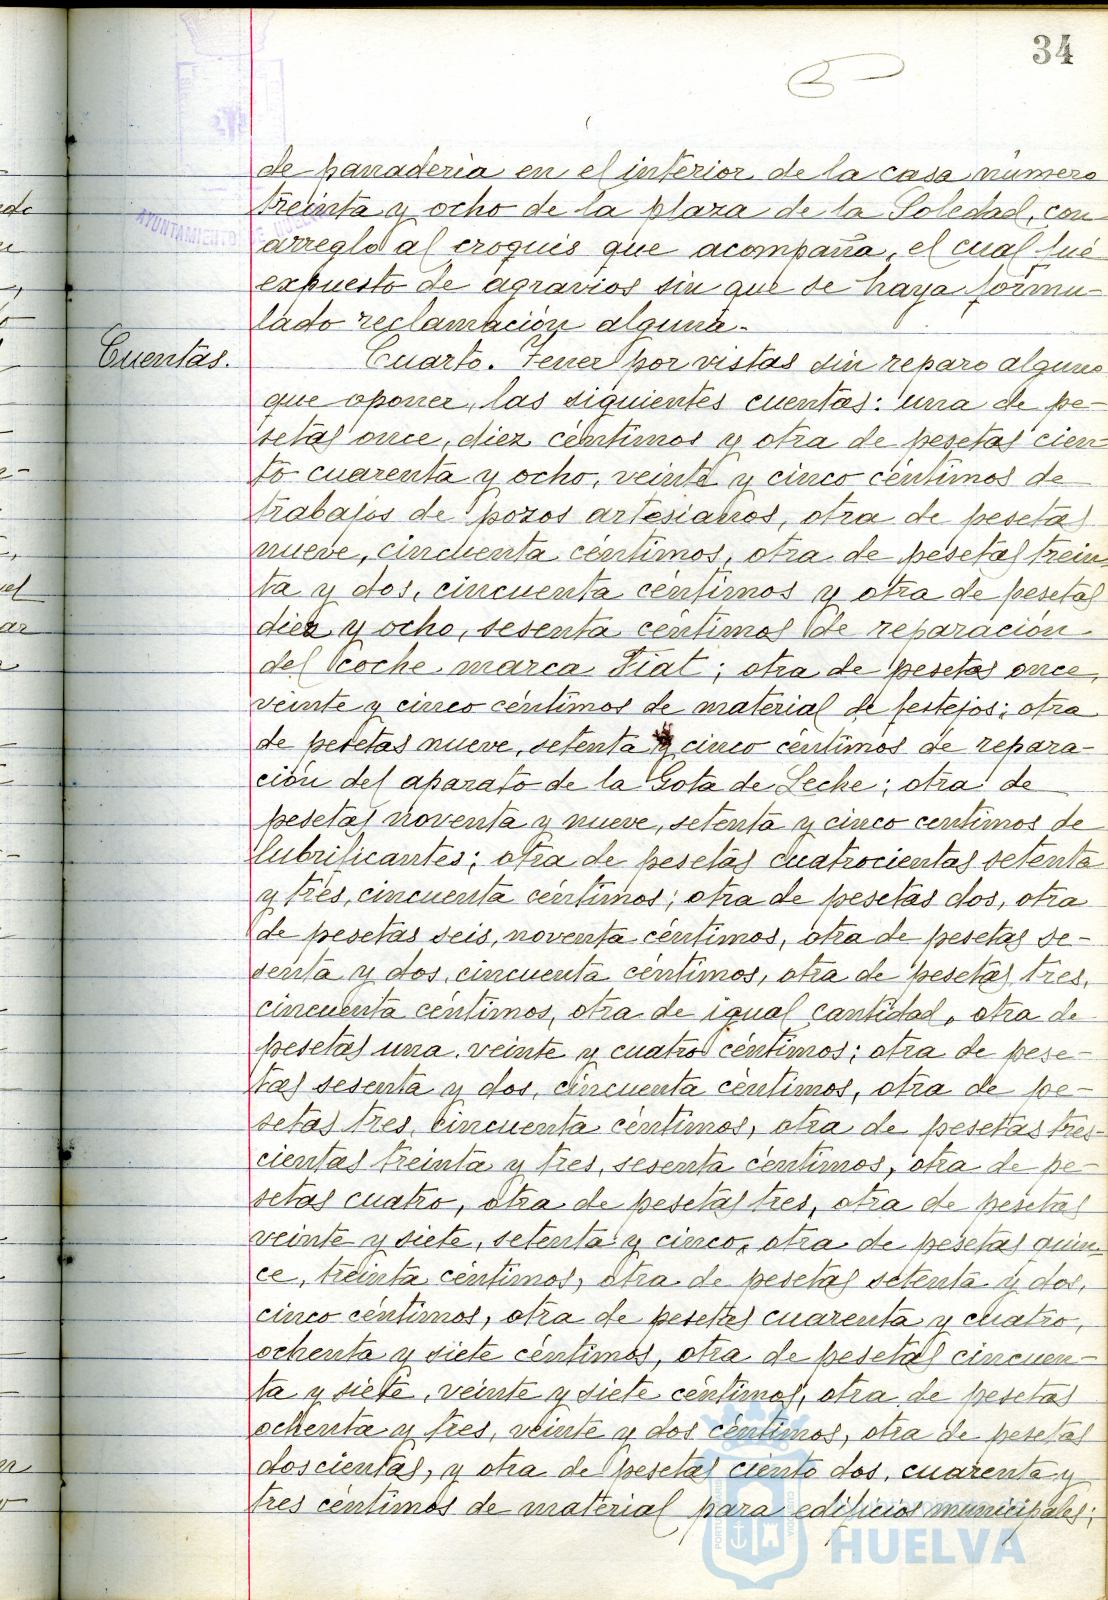 34
AYUNTAMIENTO DE HUELVA
de panadería en el interior de la casa número
treinta y ocho de la plaza de la Soledad, con
arreglo al croquis que acompaña, el cual fué
expuesto de agravios sin que se haya formu-
lado reclamación alguna.
Cuentas.
Cuarto. Tener por vistas sin reparo alguno
que oponer, las siguientes cuentas: una de pe-
setas once, diez céntimos y otra de pesetas cien-
to cuarenta y ocho, veinte y cinco céntimos de
trabajos de pozos artesianos, otra de pesetas
nueve, cincuenta céntimos, otra de pesetas trein
ta y dos, cincuenta céntimos y otra de pesetas
diez y ocho, sesenta céntimos de reparación
del coche marca Fiat; otra de pesetas once,
veinte y cinco céntimos de material de festejos; otra
de pesetas nueve, setenta y cinco céntimos de repara-
ción del aparato de la Gota de Leche; otra de
pesetas noventa y nueve, setenta y cinco centimos de
lubrificantes; otra de pesetas cuatrocientas setenta
y tres, cincuenta céntimos; otra de pesetas dos, otra
de pesetas seis, noventa céntimos, otra de pesetas se-
senta y dos, cincuenta céntimos, otra de pesetas tres,
cincuenta céntimos, otra de igual cantidad, otra de
pesetas una, veinte y cuatro céntimos; otra de pese-
tas sesenta y dos, cincuenta céntimos, otra de pe-
setas tres, cincuenta céntimos, otra de pesetas tres-
cientas treinta y tres, sesenta céntimos, otra de pe-
setas cuatro, otra de pesetas tres, otra de pesetas
veinte y siete, setenta y cinco, otra de pesetas quin-
ce, treinta céntimos, otra de pesetas setenta y dos,
cinco céntimos, otra de pesetas cuarenta y cuatro,
ochenta y siete céntimos, otra de pesetas cincuen-
ta y siete, veinte y siete céntimos, otra de pesetas
ochenta y tres, veinte y dos céntimos, otra de pesetas
doscientas, y otra de pesetas ciento dos, cuarenta y
tres céntimos de material para edificios municipales;
HUELVA